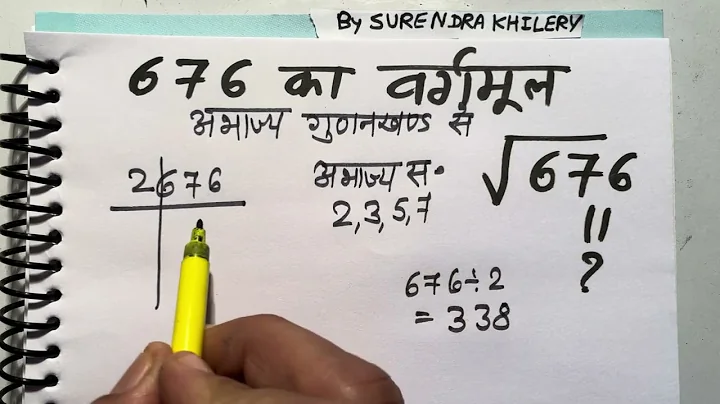 By SURENDRA KHILERY
676 का वर्गमूल
अभाज्य गुणनखण्ड से
2 676
अभाज्य सं॰
2,3,5,7
√676
=
?
676÷2
= 338